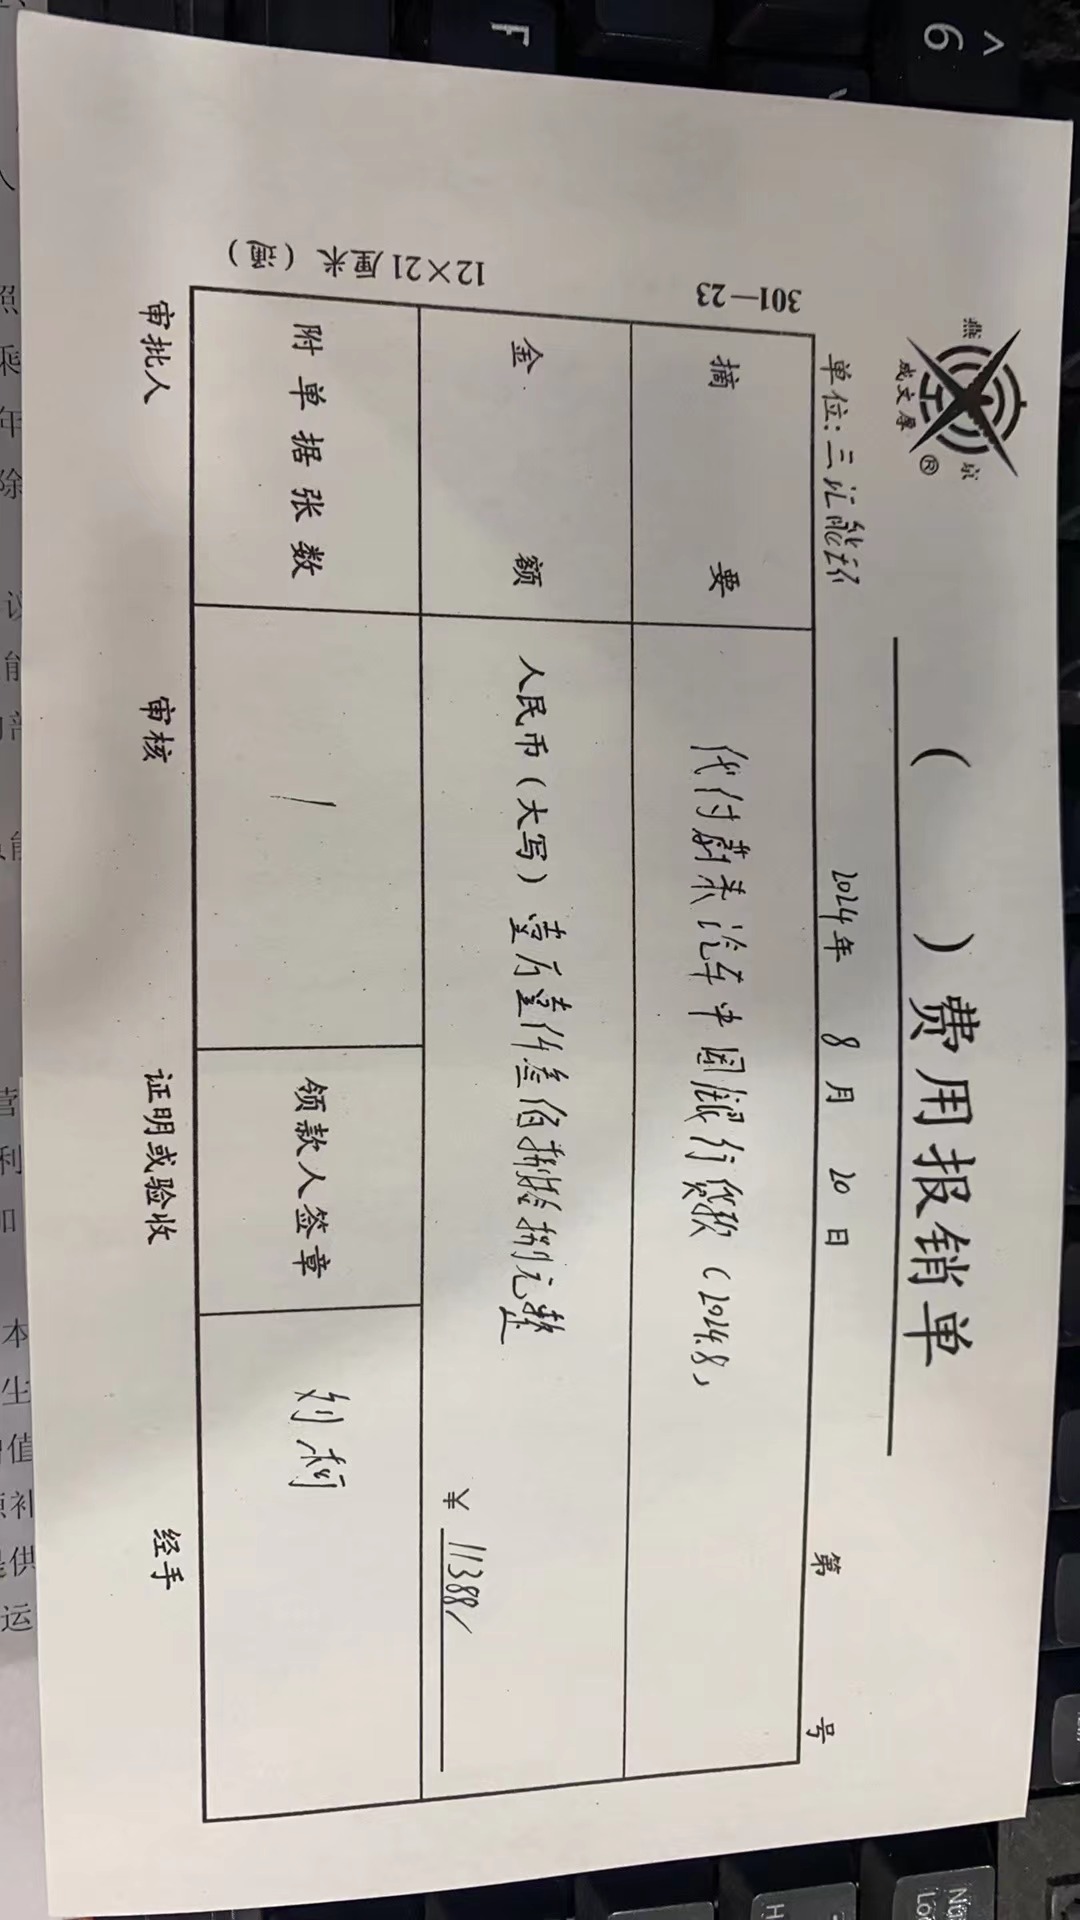 燕 京
成文厚
®
( )费用报销单
单位:三汇能环 2024年 8月 20日 第 号
301—23
摘要 代付蔚来汽车中国银行贷款(2024.8)
金额 人民币(大写)壹万壹仟叁佰捌拾捌元整
¥ 11388/
附单据张数 / 领款人签章 刘柯
12×21厘米 (通)
审批人 审核 证明或验收 经手
F
^
6